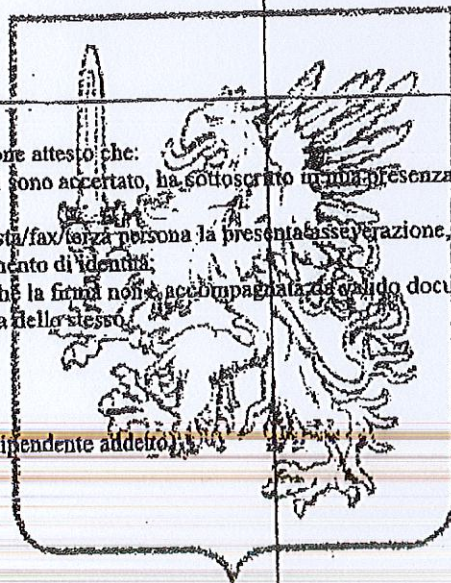 one attesto che:
sono accertato, ha sottoscritto in mia presenza
sta/fax/terza persona la presente asseverazione,
mento di identità;
hé la firma non è accompagnata da valido docu
a dello stesso.
ipendente addetto)